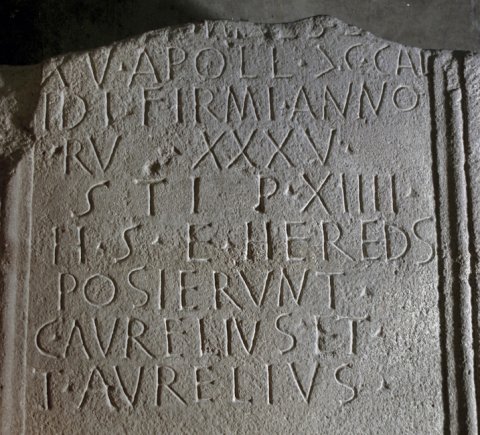 XV·APOLL·>·C·CAL
IDI·FIRMI·ANNO
RV XXXV·
STIP·XIIII·
H·S·E·HEREDS
POSIERVNT·
C·AVRELIVS·ET·
T·AVRELIVS·